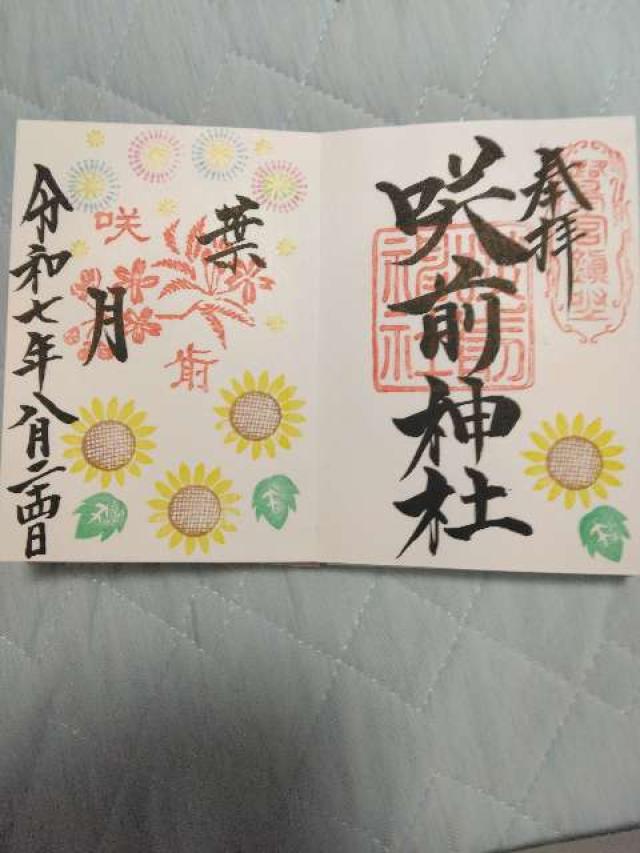 奉拝
咲前神社
咲前
神社
葉月
咲前
令和七年八月二四日